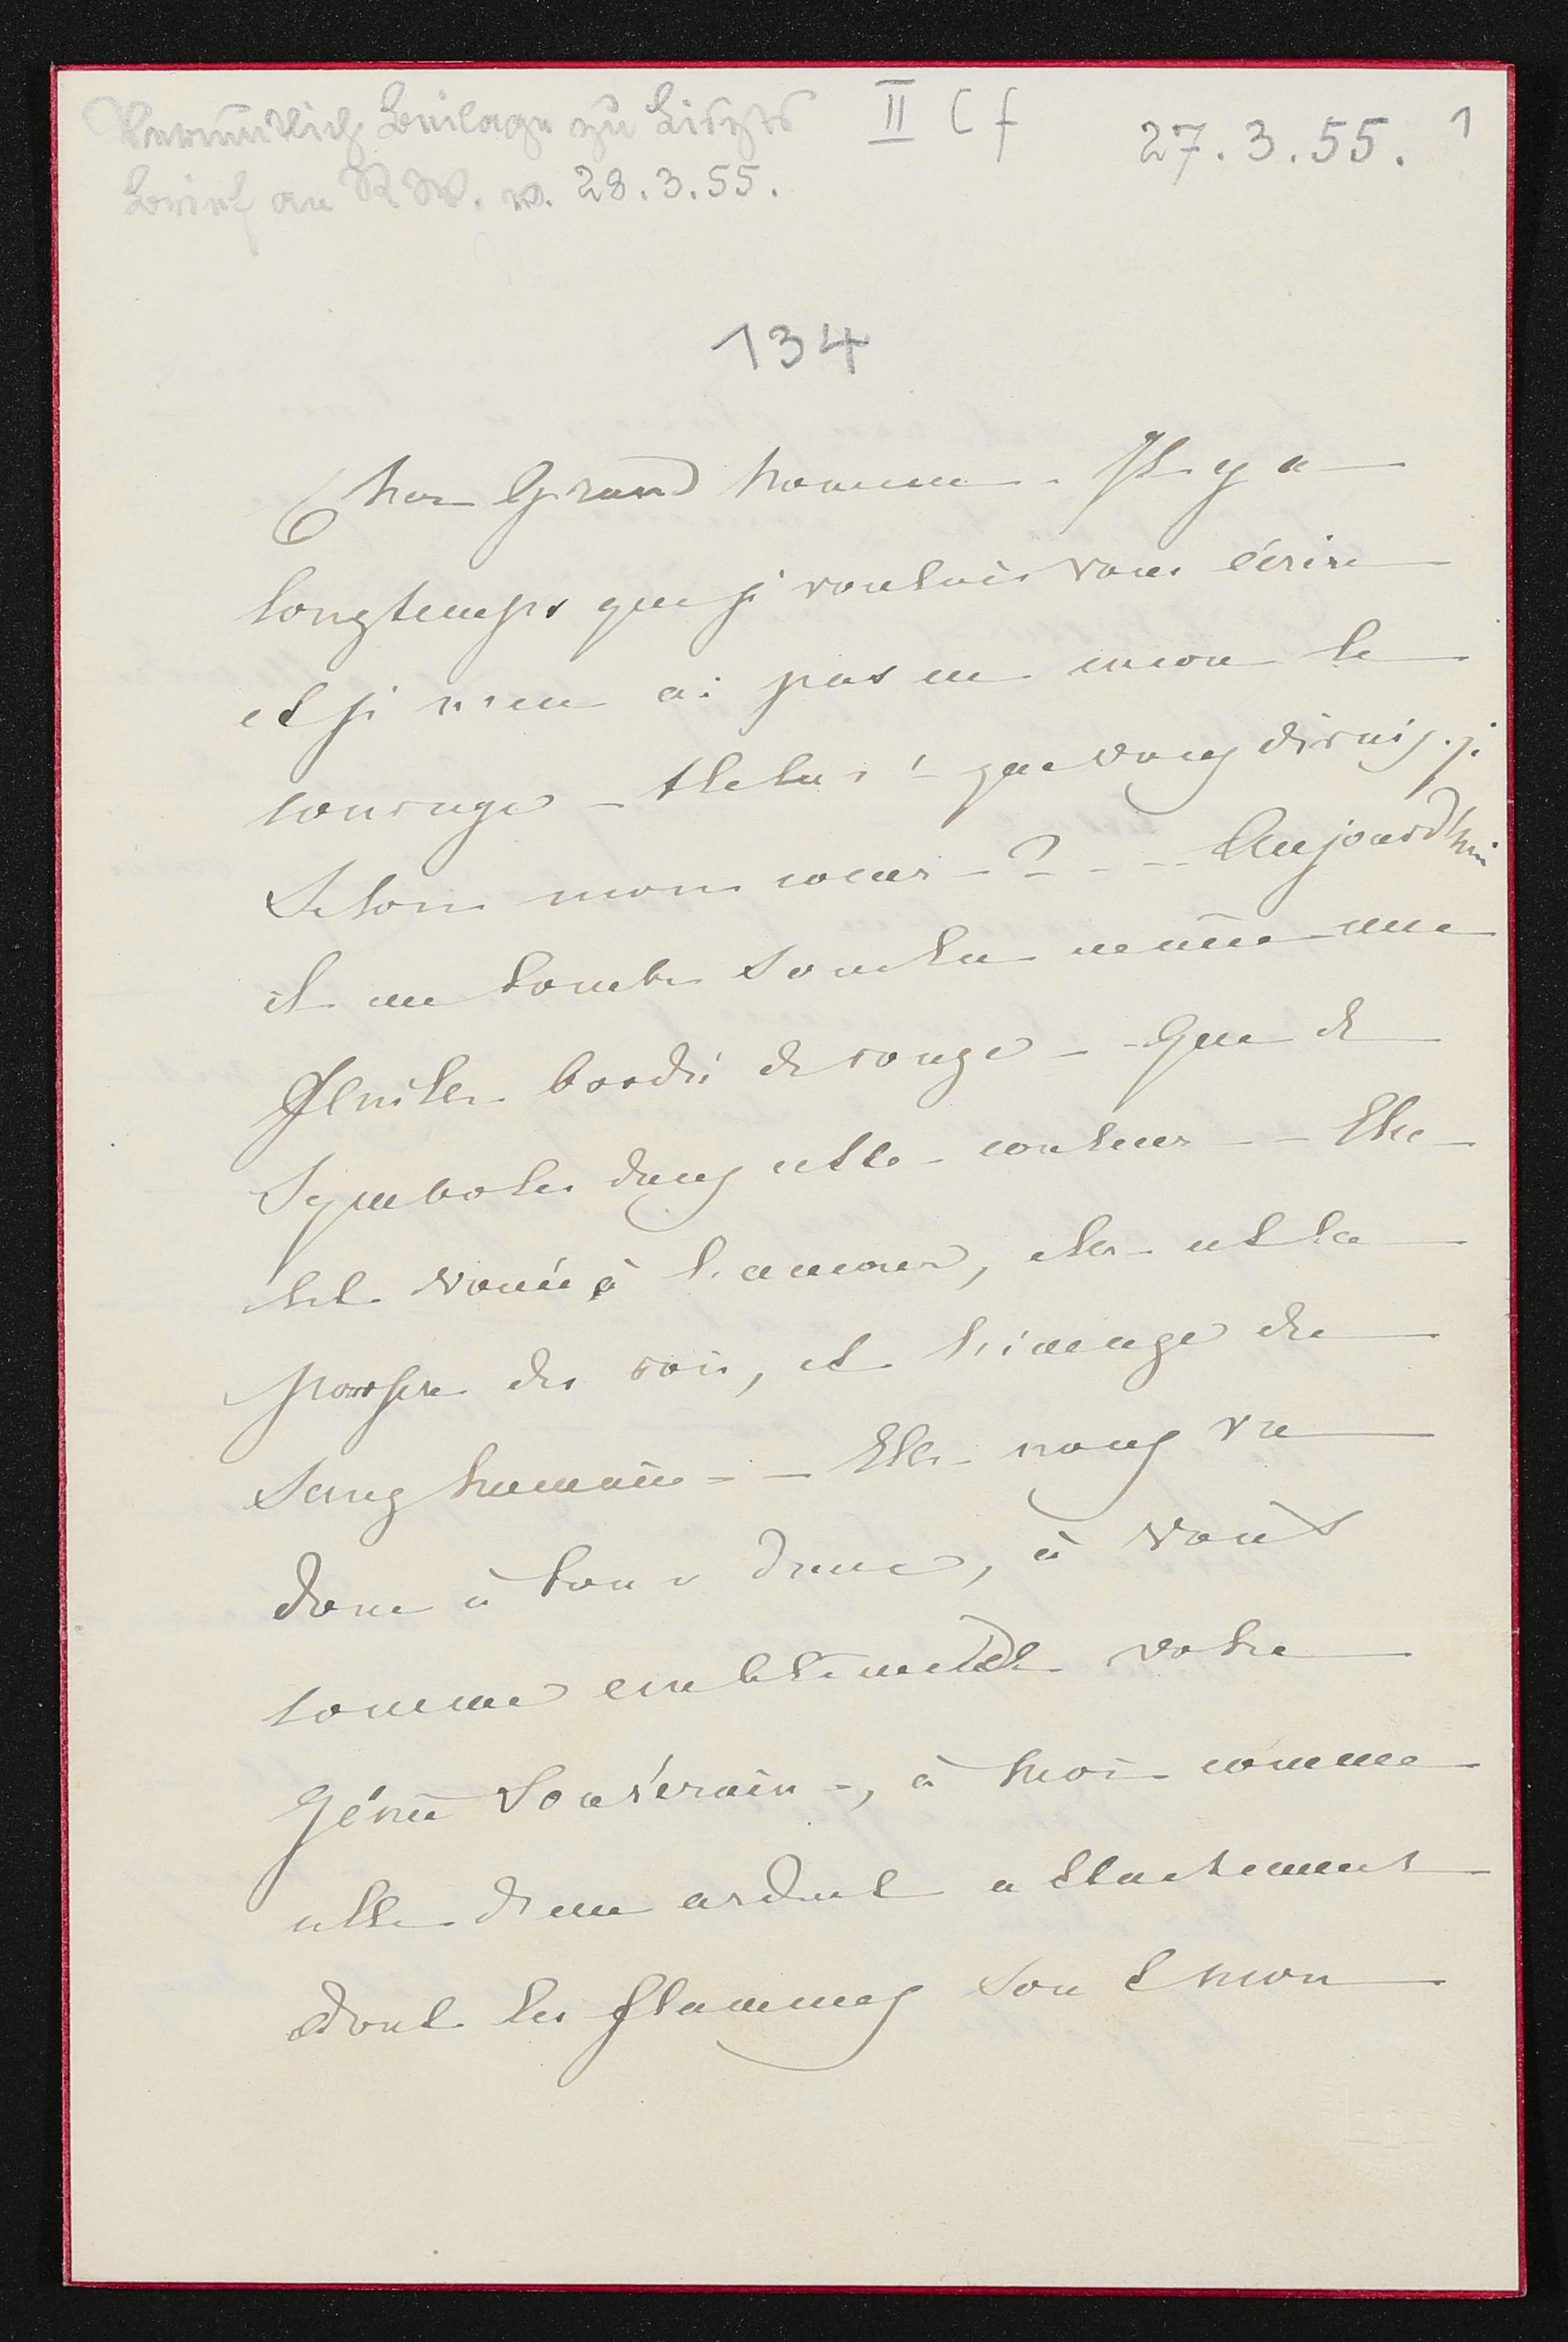 Vermutlich Beilage zu Liszts
Brief an RW. v. 28.3.55.
II C f
27.3.55.
1
134
Cher Grand homme. Il y a
longtemps que je voulais vous écrire
et je n'en ai pas eu encore le
courage – Helas! – que vous dirais-je
selon mon coeur –? – – Aujourd'hui
il me tombe sous la main une
feuille bordée de rouge – – Que de
Symboles dans cette couleur – – Elle
est vouée à l'amour, elle est la
pourpre des rois, et l'image du
sang humain – – Elle nous va
donc à tous deux, à vous
comme emblème de votre
génie souverain –, à moi comme
celle d'un ardent attachement
dont les flammes sont mon